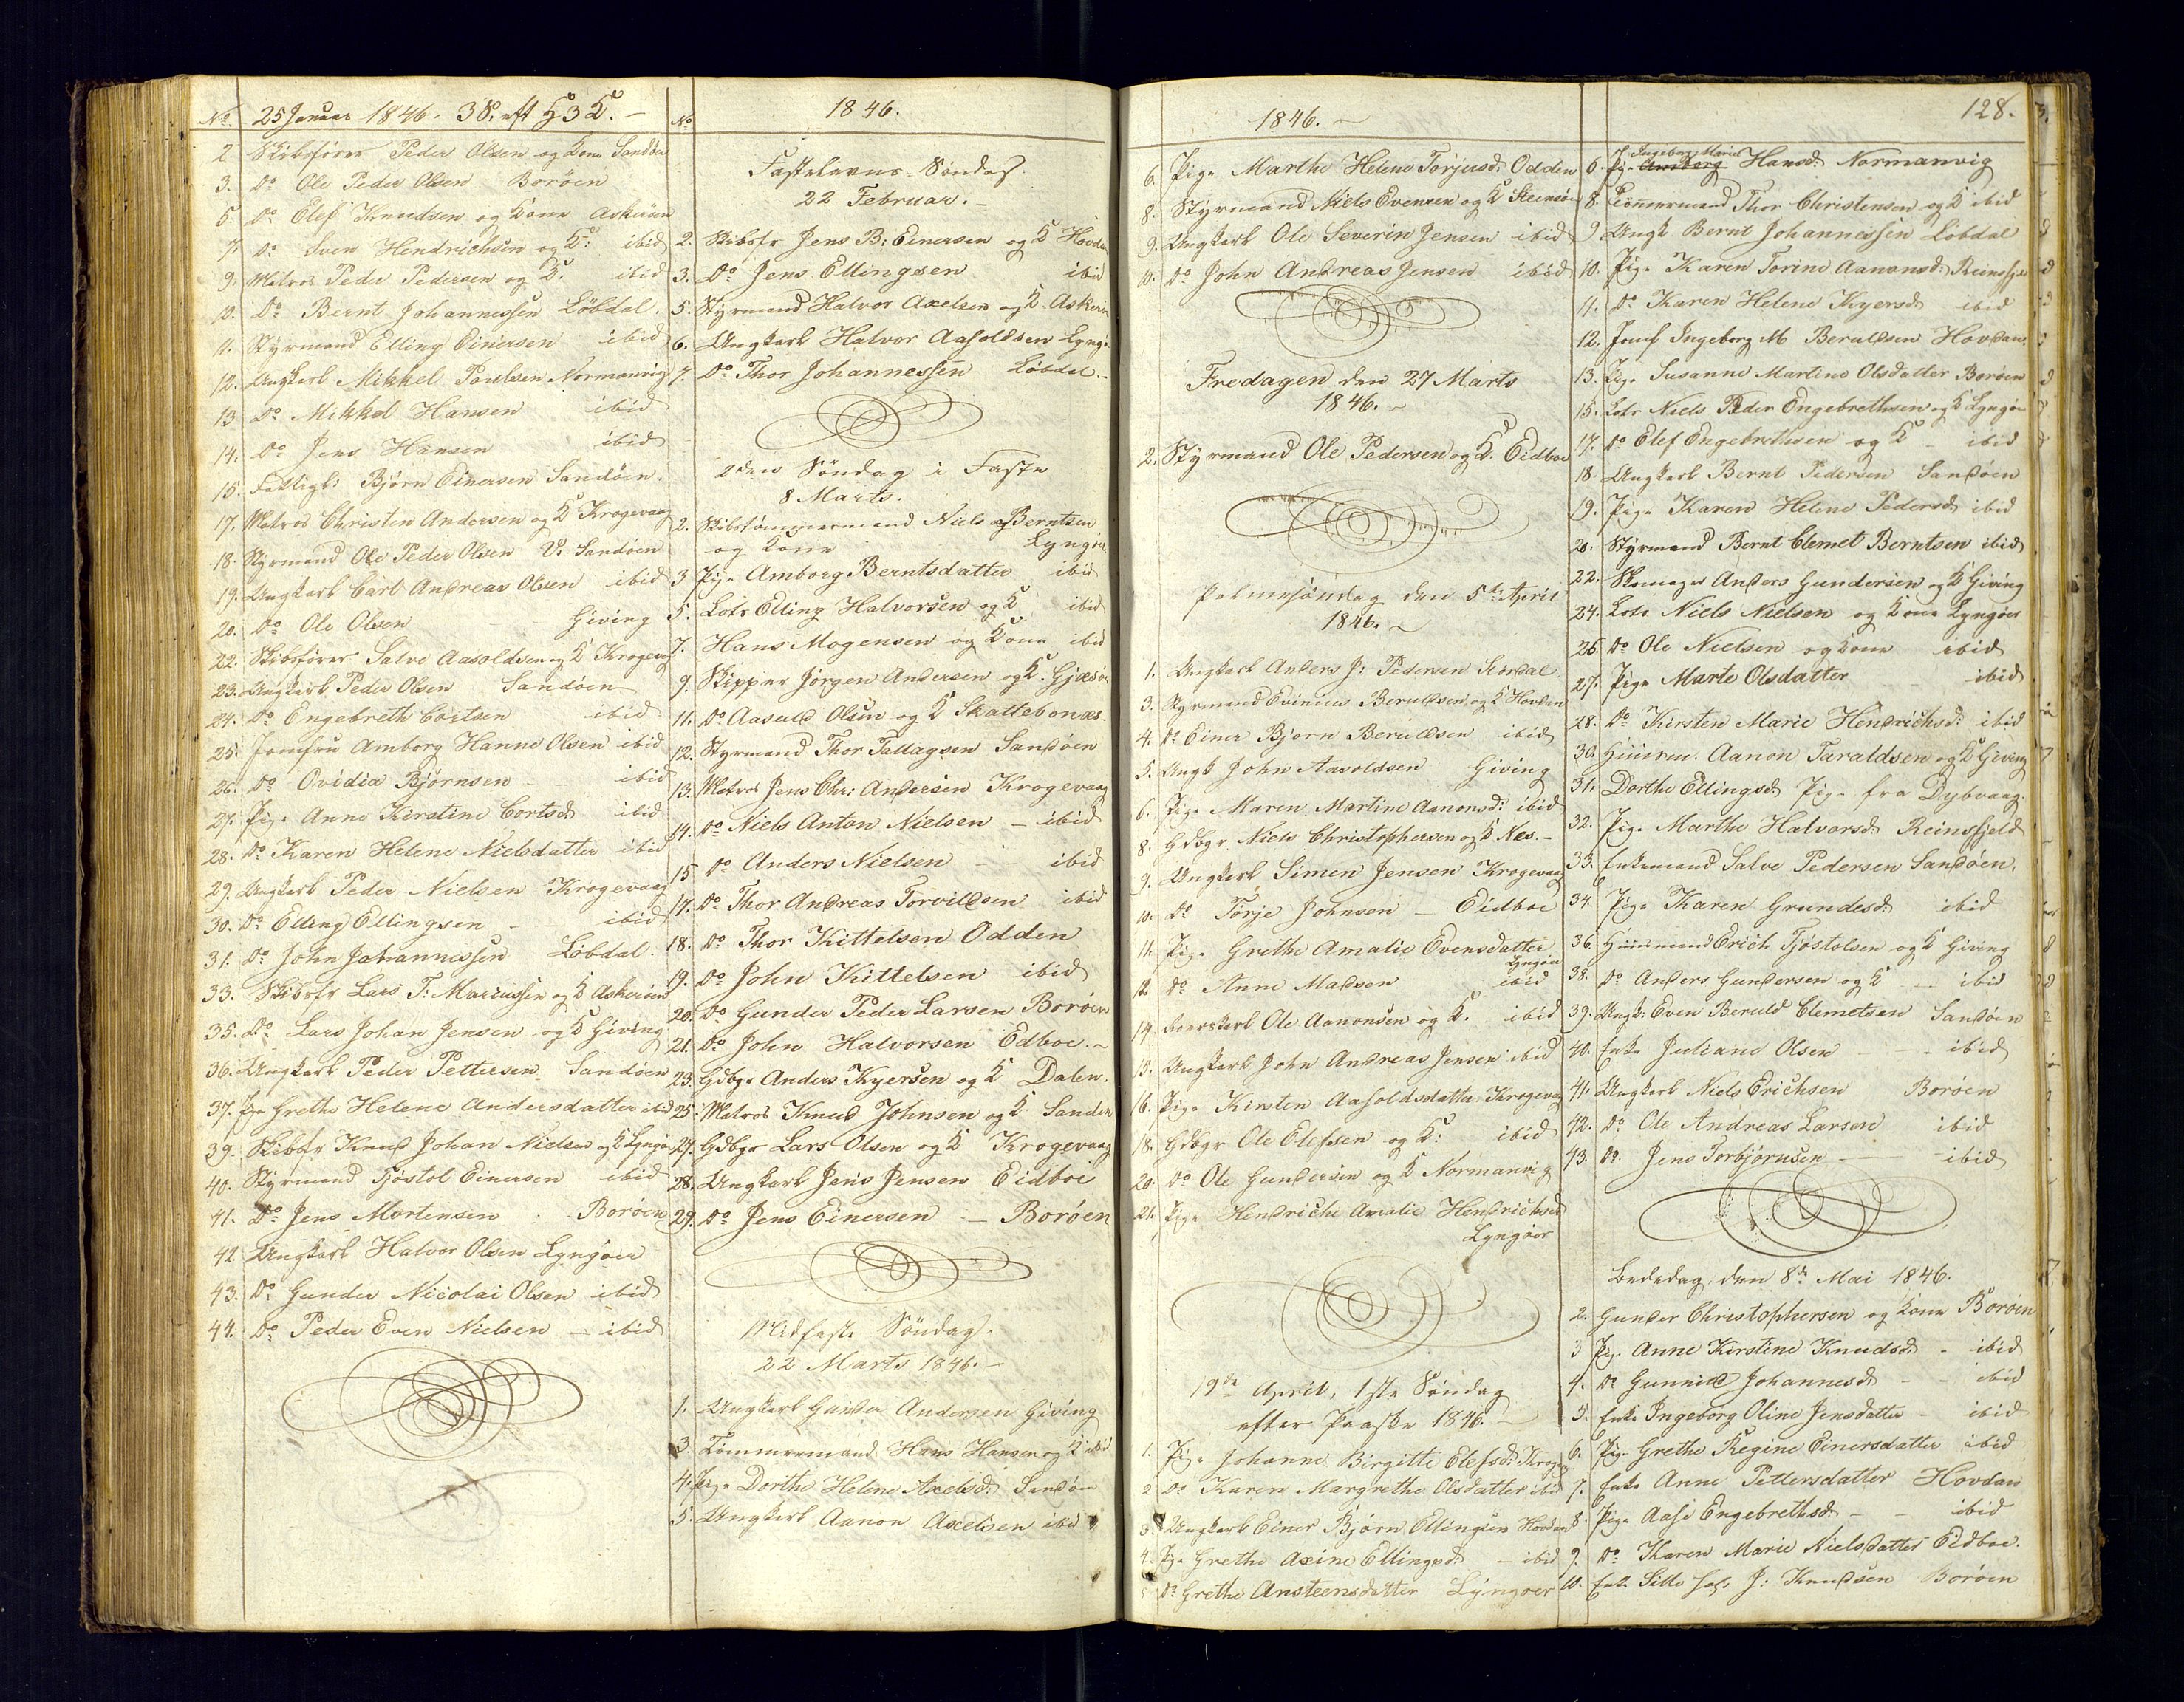 No. 25 Januar 1846. 3 S. eft H 3 K. –
2 Skibsfører Peder Olsen og Kone Sandöen
3. Do Ole Peder Olsen Boröen
5. Do Elef Knudsen og Kone Askeröen
7. Do Sven Hendrichsen og K: ibid
9. Matros Peder Pedersen og K. ibid
10. Do Bernt Johannessen Löbdal.
11. Styrmand Elling Einersen ibid
12. Ungkarl Mikkel Poulsen Normanvig
13 Do Mikkel Hansen ibid
14. Do Jens Hansen ibid
15. Fattigl: Bjørn Einersen Sandöen.
17. Matros Christen Andersen og K Krogevaag
18. Styrmand Ole Peder Olsen V. Sandöen
19. Ungkarl Carl Andreas Olsen ibid
20. Do Ole Olsen Giving
22. Skibsfører Salve Aasoldsen og K Krogevaag
23. Ungkarl Peder Olsen Sandöen
24. Do Engebreth Cortsen ibid
25. Jomfru Amborg Hanne Olsen ibid
26. Do Ovidia Bjørnsen – ibid
27. Pige Anne Kirstine Cortsd. ibid
28. Do Karen Helene Nielsdatter ibid
29. Ungkarl Peder Nielsen Krogevaag
30. Do Elling Ellingsen – ibid
31. Do John Johannessen Löbdal.
33. Skibsfr Lars T: Mariussen og K Askeröen
35. Do Lars Johan Jensen og K Giving
36. Ungkarl Peder Pettersen Sandöen
37. Pige Grethe Helene Andersdatter ibid
39. Skibsfr Knud Johan Nielsen og K Lyngör
40. Styrmand Tjöstol Einersen ibid
41. Do Jens Mortensen Boröen
42. Ungkarl Halvor Olsen Lyngöer
43. Do Gunder Nicolai Olsen ibid
44. Do Peder Even Nielsen – ibid
No 1846.
Fastelavns Söndag.
22 Februar. –
2. Skibsfr Jens B: Einersen og K Hovdan
3. Do Jens Ellingsen ibid
5. Styrmand Halvor Axelsen og K. Askeröen
6. Ungkarl Halvor Aasoldsen Lyngör
7. Do Thor Johannessen Löbdal –
2den Söndag i Faste
8 Marts.
2. Skibstömmermand Niels Berntsen
og Kone Lyngör
3 Pige Amborg Berntsdatter ibid
5. Lods Elling Halvorsen og K ibid
7. Hans Mogensen og Kone ibid
9. Skipper Jörgen Andersen og K. Gjæsö
11. Do Aasuld Olsen og K Skattebonæs
12. Styrmand Thor Tallagsen Sandöen
13. Matros Jens Chr: Andersen Krogevaag
14. Do Niels Anton Nielsen – ibid
15 Do Anders Nielsen – ibid
17. Do Thor Andreas Torvildsen ibid
18. Do Thor Kittelsen Odden
19. Do John Kittelsen ibid
20. Do Gunder Peder Larsen Boröen
21. Do John Halvorsen Edboe. –
23. Gdbgr Anders Kyersen og K Dalen.
25. Matros Knud Johnsen og K Sandöen
27. Gdbgr Lars Olsen og K Krogevaag
28. Ungkarl Jens Jensen Eidboe
29. Do Jens Einersen – Boröen
Midfaste Söndag.
22 Marts 1846. –
1. Ungkarl Gunder Andersen Giving
3. Tömmermand Hans Hansen og K ibid
4. Pige Dorthe Helene Axelsd. Sandöen
5. Ungkarl Aanon Axelsen ibid
1846. –
6. Pige Marthe Helene Torjusd. Odden
8. Styrmand Niels Evensen og K Steensöen
9. Ungkarl Ole Severin Jensen ibid
10. Do John Andreas Jensen ibid
Fredagen den 27 Marts
1846. –
2. Styrmand Ole Pedersen og K. Eidboe
Palmesöndag den 5te April
1846. –
1. Ungkarl Anders J: Pedersen
3. Styrmand Beruldsen og K Hovdan
4. Do Einer Bjørn Beruldsen ibid
5. Ungk John Aasoldsen Giving
6. Pige Maren Martine Aanonsd. ibid
8. Gdbgr. Niels Christophersen og K Næs. –
9. Ungkarl Simen Jensen Krogevaag
10. Do Törje Johnsen – Eidboe
11. Pige Grethe Amalie Evensdatter
Lyngöer
12 Do Anne Madsen ibid
14. Ole Aanonsen og K. ibid
15. Ungkarl John Andreas Jensen ibid
16. Pige Kirsten Aasoldsdatter Krogevaag
18. Gdbgr Ole Elefsen og K: ibid
20. Do Ole Gundersen og K Normanvig
21. Pige Hendriche Amalie Hendrichsd
Lyngöer
19de April, 1ste Söndag
efter Paaske 1846. –
1. Pige Johanne Birgitte Elefsd. Krogev
2 Do Karen Margrethe Olsdatter ibid
3. Ungkarl Einer Bjørn Ellingsen Hovdan
4. Pige Grethe Axine Ellingsd. – ibid
5 Do Grethe Ansteensdatter Lyngöer
128.
6. Pige Amborg Ingeborg Marie Hansd. Normanvig
8. Tömmermand Thor Christensen og K ibid
9 Ungk Bernt Johannessen Löbdal
10. Pige Karen Torine Aanonsd. Reinsfjeld
11. Do Karen Helene Kyersd. ibid
12. Jomf Ingeborg M Beruldsen Hovdan.
13. Pige Susanne Martine Olsdatter Boröen
15. Lods Niels Peder Engebrethsen og K Lyngör
17. Do Elef Engebrethsen og K – ibid
18. Ungkarl Bernt Pedersen Sandöen
19. Pige Karen Helene Pedersd. ibid
20. Styrmand Bernt Clemet Berntsen ibid
22. Skomager Anders Gundersen og K Giving
24. Lods Niels Nielsen og Kone Lyngöer
26. Do Ole Nielsen og Kone ibid
27. Pige Marte Olsdatter ibid
28. Do Kirsten Marie Hendrichsd. ibid
30. Huusm. Aanon Taraldsen og K Giving
31. Dorthe Ellingsd. Pige fra Dybvaag.
32. Pige Marthe Halvorsd. Reinsfjeld
33. Enkemand Salve Pedersen Sandöen.
34. Pige Karen Grundesd. ibid
36. Huusmand Erich Tjöstolsen og K Giving
38. Do Anders Gundersen og K – ibid
39. Ungk: Even Beruld Clemetsen Sandöen
40. Enke Juliane Olsen – ibid
41. Ungkarl Niels Erichsen Boröen
42. Do Ole Andreas Larsen ibid
43. Do Jens Torbjörnsen – ibid
Bededag, den 8de Mai 1846.
2. Gunder Christophersen og Kone Boröen
3 Pige Anne Kirstine Knudsd. – ibid
4. Do Gunnild Johannesd. – ibid
5. Enke Ingeborg Oline Jensdatter – ibid
6. Pige Grethe Regine Einersdatter ibid
7. Enke Anne Pettersdatter Hovdan
8. Pige Aase Engebrethsd. – ibid
9. Do Karen Marie Nielsdatter Eidboe.
10. Enke Sille J: Knudsen Boröen